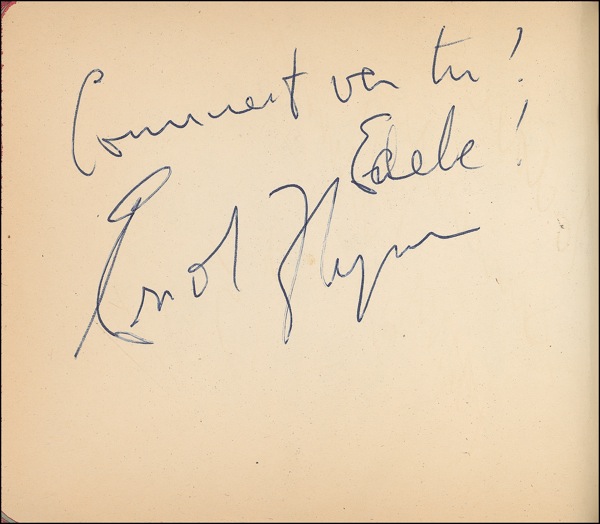 Comment va tu!
Edele!
Errol Flynn